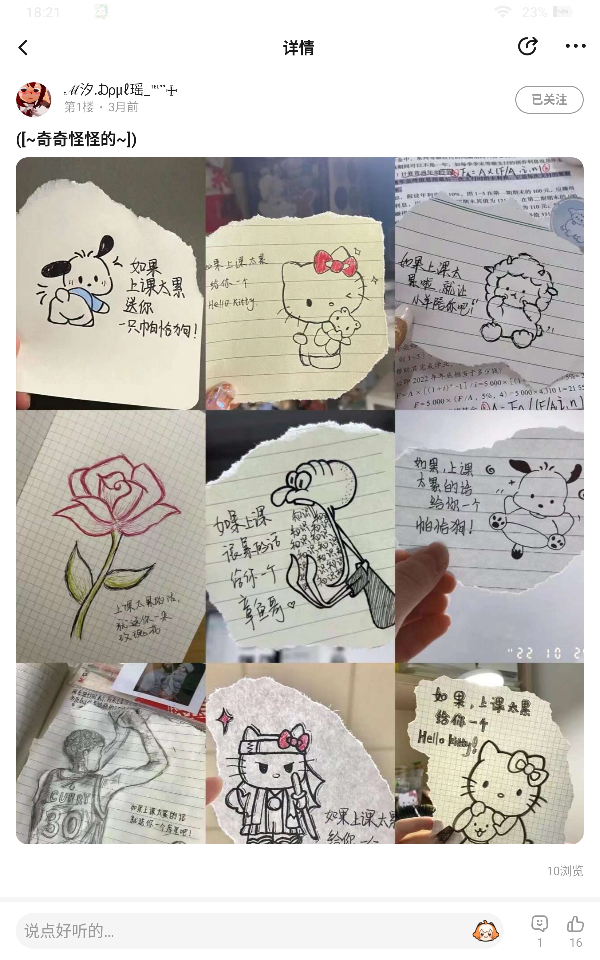 18:21
23%
详情
第1楼・3月前
已关注
([~奇奇怪怪的~])
如果
上课太累
送你
一只帕恰狗!
如果上课太累
给你一个
Hello Kitty.
如果上课太
累啦,就让
小羊陪你吧!
上课太累的话,
就送你一朵
玫瑰花
如果上课
说累的话
给你一个
章鱼哥
如果,上课
太累的话
给你一个
帕恰狗!
"22 10 2
CURRY
30
如果上课太累的话
就送你一个库里吧!
如果上课太累
给你一个
如果,上课太累
给你一个
Hello kitty!
10浏览
说点好听的...
1
16